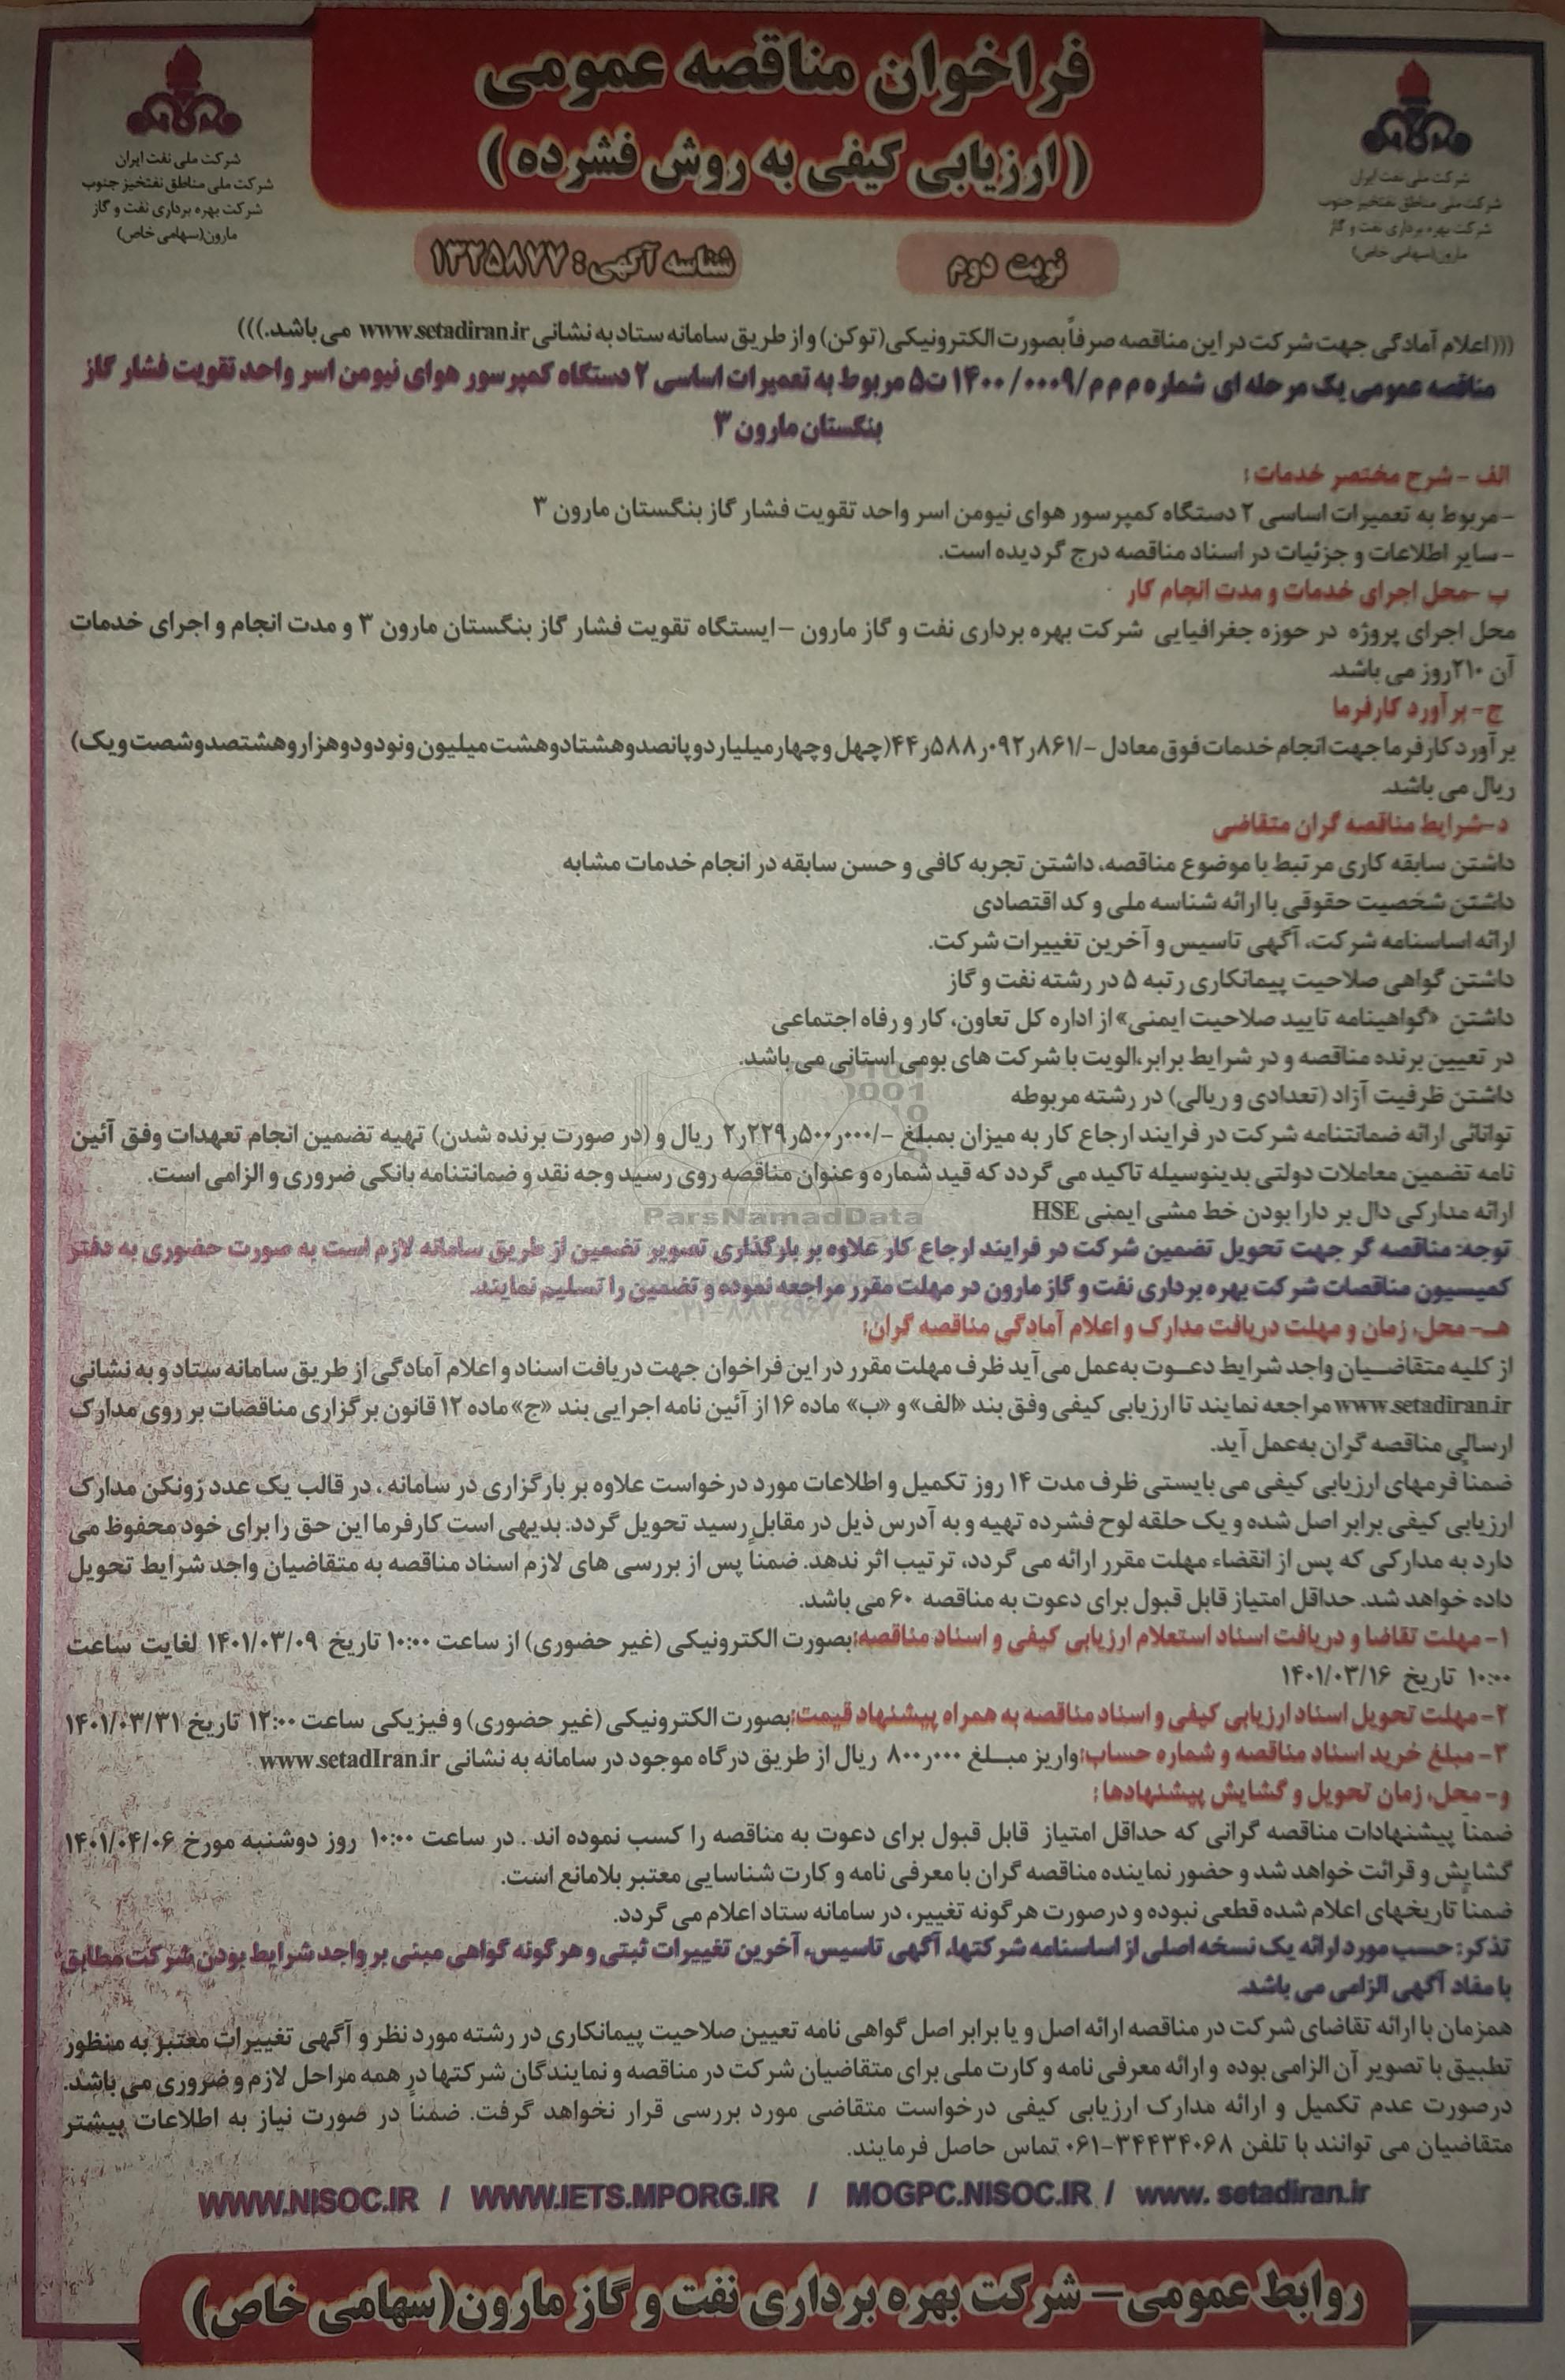 فراخوان مناقصه عمومی
(ارزیابی کیفی به روش فشرده)
شرکت ملی نفت ایران
شرکت ملی مناطق نفتخیز جنوب
شرکت بهره برداری نفت و گاز
مارون(سهامی خاص)
شرکت ملی نفت ایران
شرکت ملی مناطق نفتخیز جنوب
شرکت بهره برداری نفت و گاز
مارون(سهامی خاص)
نوبت دوم
شناسه آگهی: ۱۳۲۵۸۷۷
(((اعلام آمادگی جهت شرکت در این مناقصه صرفاً بصورت الکترونیکی(توکن) و از طریق سامانه ستاد به نشانی www.setadiran.ir می باشد.)))
مناقصه عمومی یک مرحله ای شماره م م م/۰۰۰۹/۱۴۰۰ ت۵ مربوط به تعمیرات اساسی ۲ دستگاه کمپرسور هوای نیومن اسر واحد تقویت فشار گاز
بنگستان مارون ۳
الف - شرح مختصر خدمات:
-مربوط به تعمیرات اساسی ۲ دستگاه کمپرسور هوای نیومن اسر واحد تقویت فشار گاز بنگستان مارون ۳
-سایر اطلاعات و جزئیات در اسناد مناقصه درج گردیده است.
ب -محل اجرای خدمات و مدت انجام کار
محل اجرای پروژه در حوزه جغرافیایی شرکت بهره برداری نفت و گاز مارون -ایستگاه تقویت فشار گاز بنگستان مارون ۳ و مدت انجام و اجرای خدمات
آن ۲۱۰روز می باشد.
ج- برآورد کارفرما
برآورد کارفرما جهت انجام خدمات فوق معادل -/۴۴٫۵۸۸٫۰۹۲٫۸۶۱(چهل و چهار میلیارد و پانصد و هشتاد و هشت میلیون و نود و دو هزار و هشتصد و شصت و یک)
ریال می باشد.
د-شرایط مناقصه گران متقاضی
داشتن سابقه کاری مرتبط با موضوع مناقصه، داشتن تجربه کافی و حسن سابقه در انجام خدمات مشابه
داشتن شخصیت حقوقی با ارائه شناسه ملی و کد اقتصادی
ارائه اساسنامه شرکت، آگهی تاسیس و آخرین تغییرات شرکت.
داشتن گواهی صلاحیت پیمانکاری رتبه ۵ در رشته نفت و گاز
داشتن «گواهینامه تایید صلاحیت ایمنی» از اداره کل تعاون، کار و رفاه اجتماعی
در تعیین برنده مناقصه و در شرایط برابر،الویت با شرکت های بومی استانی می باشد.
داشتن ظرفیت آزاد (تعدادی و ریالی) در رشته مربوطه
توانائی ارائه ضمانتنامه شرکت در فرایند ارجاع کار به میزان بمبلغ -/۲٫۲۲۹٫۵۰۰٫۰۰۰ ریال و (در صورت برنده شدن) تهیه تضمین انجام تعهدات وفق آئین
نامه تضمین معاملات دولتی بدینوسیله تاکید می گردد که قید شماره و عنوان مناقصه روی رسید وجه نقد و ضمانتنامه بانکی ضروری و الزامی است.
ParsNamadData
ارائه مدارکی دال بر دارا بودن خط مشی ایمنی HSE
توجه: مناقصه گر جهت تحویل تضمین شرکت در فرایند ارجاع کار علاوه بر بارگذاری تصویر تضمین از طریق سامانه لازم است به صورت حضوری به دفتر
کمیسیون مناقصات شرکت بهره برداری نفت و گاز مارون در مهلت مقرر مراجعه نموده و تضمین را تسلیم نمایند.
هـ- محل، زمان و مهلت دریافت مدارک و اعلام آمادگی مناقصه گران:
از کلیه متقاضیان واجد شرایط دعوت به عمل می آید ظرف مهلت مقرر در این فراخوان جهت دریافت اسناد و اعلام آمادگی از طریق سامانه ستاد و به نشانی
www.setadiran.ir مراجعه نمایند تا ارزیابی کیفی وفق بند «الف» و «ب» ماده ۱۶ از آئین نامه اجرایی بند «ج» ماده ۱۲ قانون برگزاری مناقصات بر روی مدارک
ارسالی مناقصه گران به عمل آید.
ضمناً فرمهای ارزیابی کیفی می بایستی ظرف مدت ۱۴ روز تکمیل و اطلاعات مورد درخواست علاوه بر بارگزاری در سامانه ، در قالب یک عدد زونکن مدارک
ارزیابی کیفی برابر اصل شده و یک حلقه لوح فشرده تهیه و به آدرس ذیل در مقابل رسید تحویل گردد. بدیهی است کارفرما این حق را برای خود محفوظ می
دارد به مدارکی که پس از انقضاء مهلت مقرر ارائه می گردد، ترتیب اثر ندهد. ضمناً پس از بررسی های لازم اسناد مناقصه به متقاضیان واجد شرایط تحویل
داده خواهد شد. حداقل امتیاز قابل قبول برای دعوت به مناقصه ۶۰ می باشد.
۱- مهلت تقاضا و دریافت اسناد استعلام ارزیابی کیفی و اسناد مناقصه:بصورت الکترونیکی (غیر حضوری) از ساعت ۱۰:۰۰ تاریخ ۱۴۰۱/۰۳/۰۹ لغایت ساعت
۱۰:۰۰ تاریخ ۱۴۰۱/۰۳/۱۶
۲- مهلت تحویل اسناد ارزیابی کیفی و اسناد مناقصه به همراه پیشنهاد قیمت:بصورت الکترونیکی (غیر حضوری) و فیزیکی ساعت ۱۲:۰۰ تاریخ ۱۴۰۱/۰۳/۳۱
۳- مبلغ خرید اسناد مناقصه و شماره حساب:واریز مبلغ ۸۰۰٫۰۰۰ ریال از طریق درگاه موجود در سامانه به نشانی www.setadIran.ir .
و- محل، زمان تحویل و گشایش پیشنهادها:
ضمناً پیشنهادات مناقصه گرانی که حداقل امتیاز قابل قبول برای دعوت به مناقصه را کسب نموده اند . در ساعت ۱۰:۰۰ روز دوشنبه مورخ ۱۴۰۱/۰۴/۰۶
گشایش و قرائت خواهد شد و حضور نماینده مناقصه گران با معرفی نامه و کارت شناسایی معتبر بلامانع است.
ضمناً تاریخهای اعلام شده قطعی نبوده و درصورت هرگونه تغییر، در سامانه ستاد اعلام می گردد.
تذکر: حسب مورد ارائه یک نسخه اصلی از اساسنامه شرکتها، آگهی تاسیس، آخرین تغییرات ثبتی و هرگونه گواهی مبنی بر واجد شرایط بودن شرکت مطابق
با مفاد آگهی الزامی می باشد.
همزمان با ارائه تقاضای شرکت در مناقصه ارائه اصل و یا برابر اصل گواهی نامه تعیین صلاحیت پیمانکاری در رشته مورد نظر و آگهی تغییرات معتبر به منظور
تطبیق با تصویر آن الزامی بوده و ارائه معرفی نامه و کارت ملی برای متقاضیان شرکت در مناقصه و نمایندگان شرکتها در همه مراحل لازم و ضروری می باشد.
درصورت عدم تکمیل و ارائه مدارک ارزیابی کیفی درخواست متقاضی مورد بررسی قرار نخواهد گرفت. ضمناً در صورت نیاز به اطلاعات بیشتر
متقاضیان می توانند با تلفن ۳۴۴۳۴۰۶۸-۰۶۱ تماس حاصل فرمایند.
WWW.NISOC.IR / WWW.IETS.MPORG.IR / MOGPC.NISOC.IR / www. setadiran.ir
روابط عمومی- شرکت بهره برداری نفت و گاز مارون(سهامی خاص)